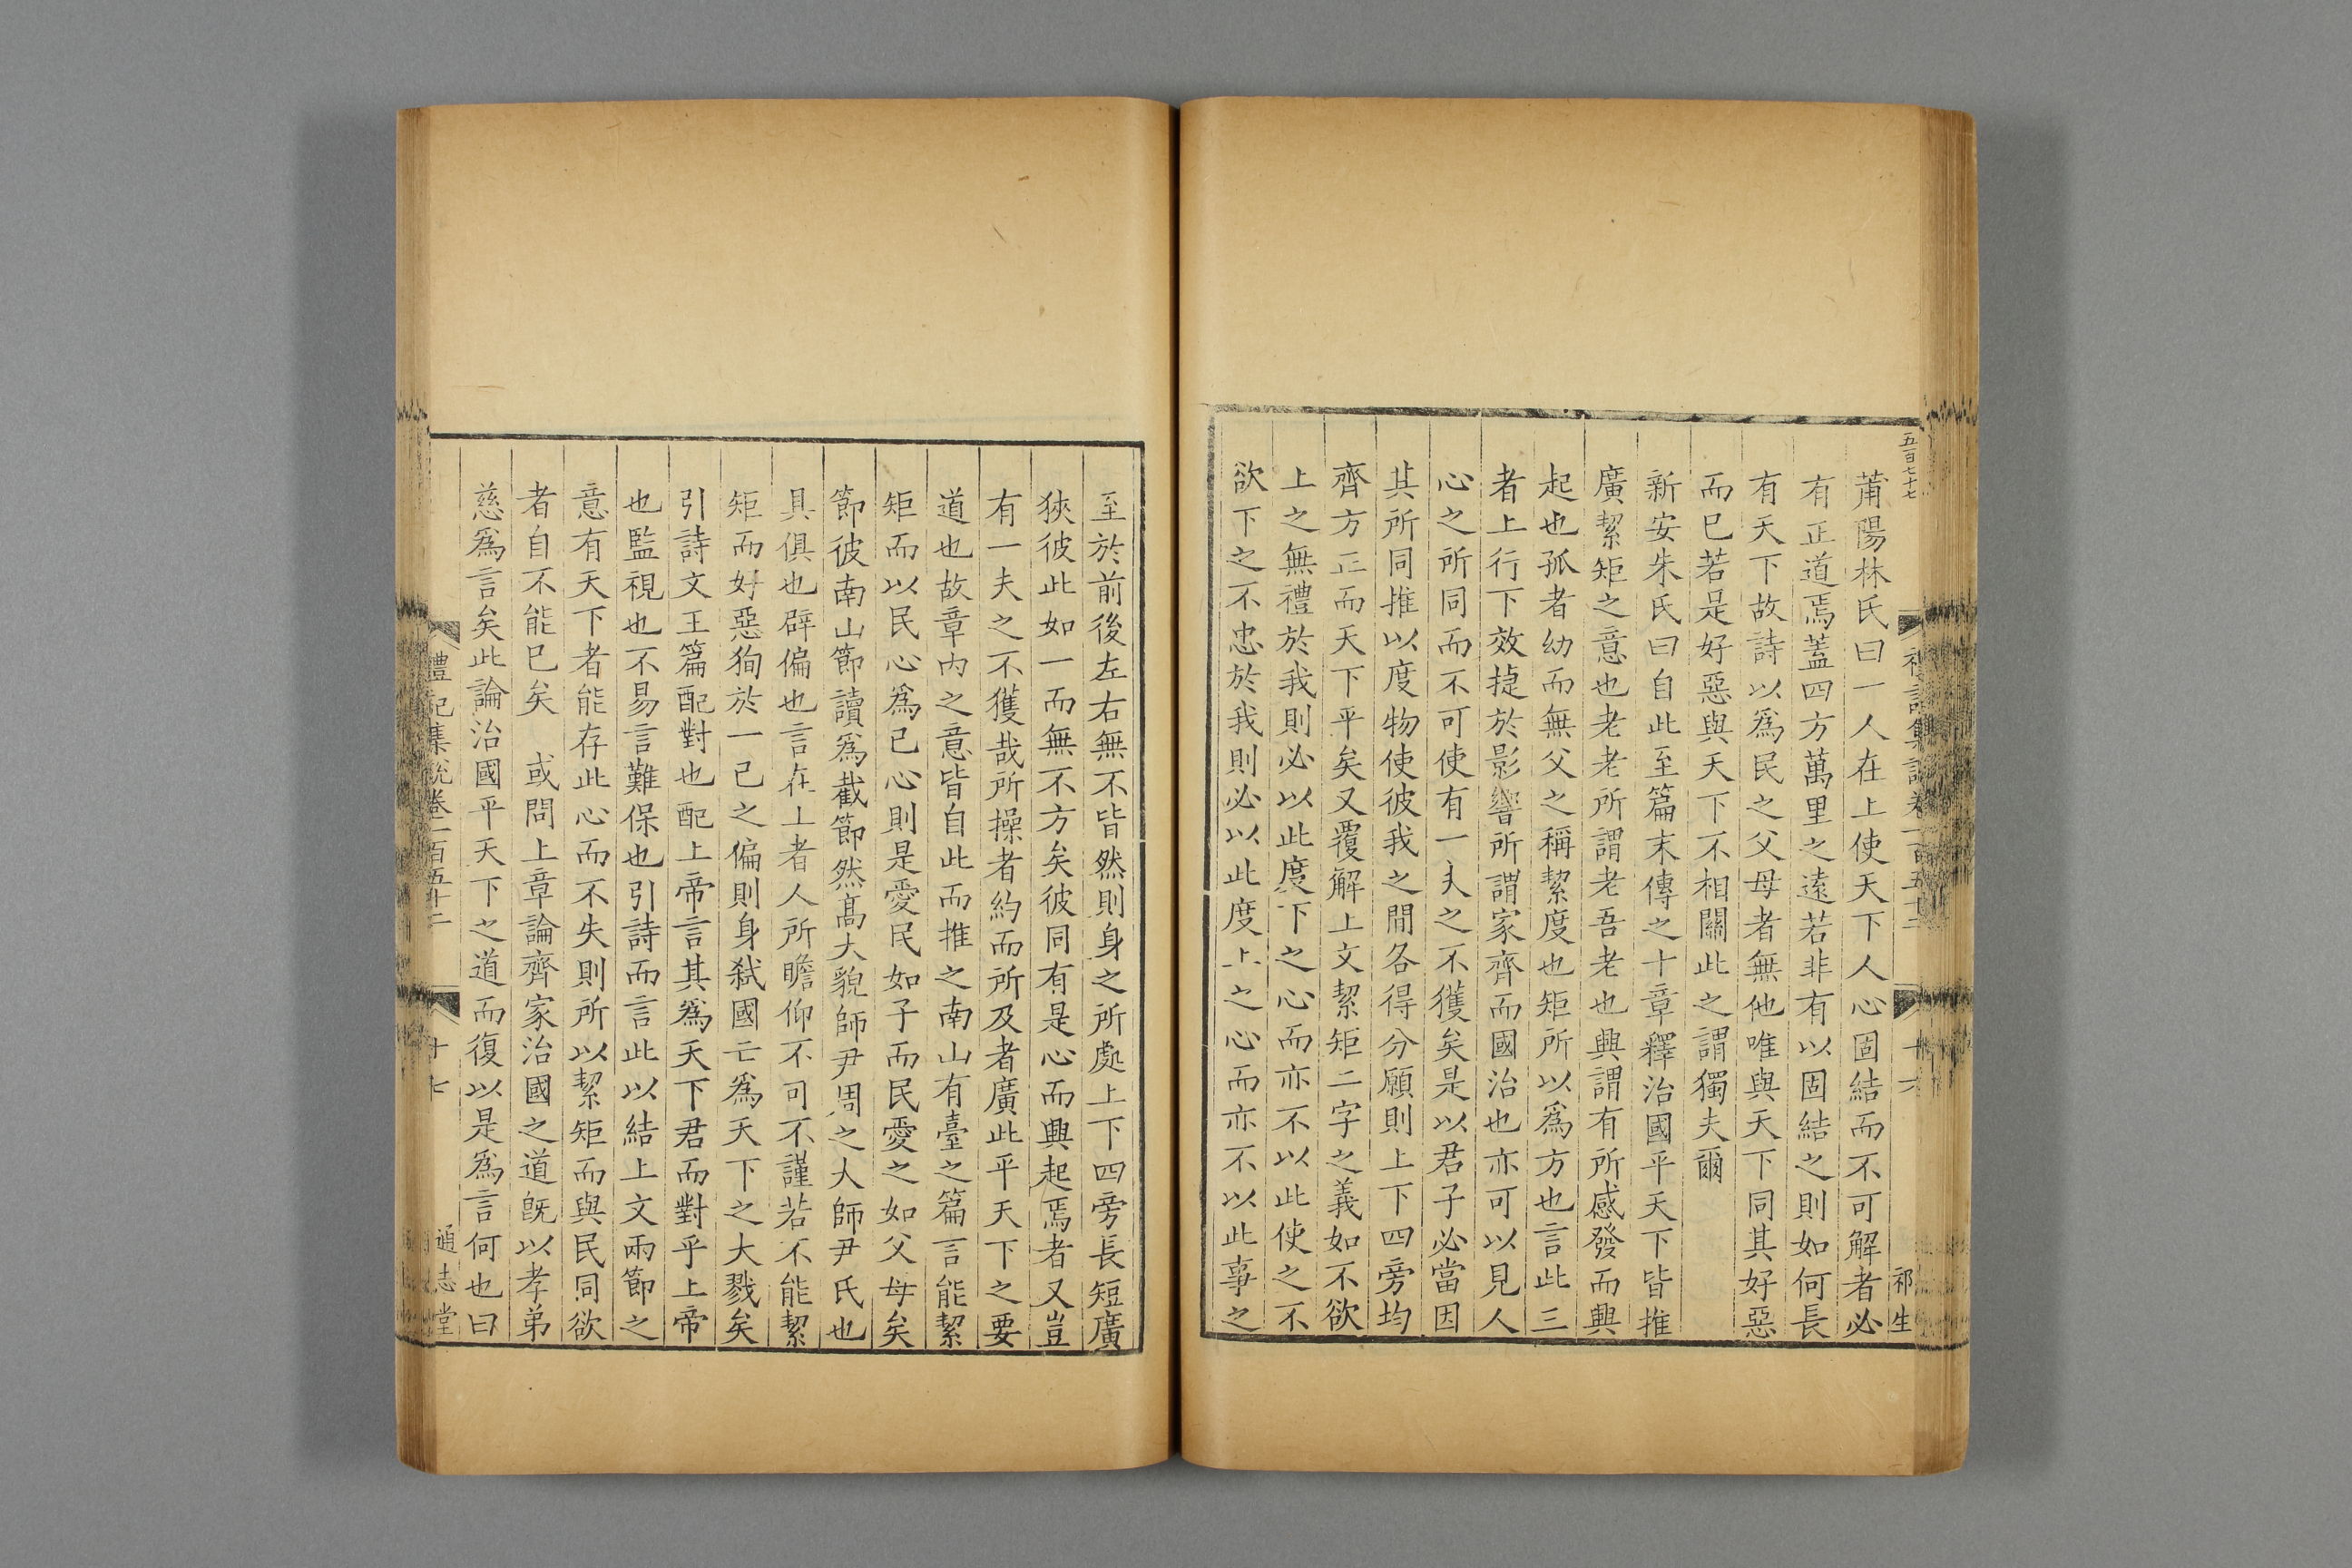 五百七十七
禮記集說卷一百五十二
十六
祁生
莆陽林氏曰一人在上使天下人心固結而不可解者必
有正道焉蓋四方萬里之遠若非有以固結之則如何長
有天下故詩以爲民之父母者無他唯與天下同其好惡
而已若是好惡與天下不相關此之謂獨夫爾
新安朱氏曰自此至篇末傳之十章釋治國平天下皆推
廣絜矩之意也老老所謂老吾老也興謂有所感發而興
起也孤者幼而無父之稱絜度也矩所以爲方也言此三
者上行下效捷於影響所謂家齊而國治也亦可以見人
心之所同而不可使有一夫之不獲矣是以君子必當因
其所同推以度物使彼我之間各得分願則上下四旁均
齊方正而天下平矣又覆解上文絜矩二字之義如不欲
上之無禮於我則必以此度下之心而亦不以此使之不
欲下之不忠於我則必以此度上之心而亦不以此事之
至於前後左右無不皆然則身之所處上下四旁長短廣
狹彼此如一而無不方矣彼同有是心而興起焉者又豈
有一夫之不獲哉所操者約而所及者廣此平天下之要
道也故章內之意皆自此而推之南山有臺之篇言能絜
矩而以民心爲己心則是愛民如子而民愛之如父母矣
節彼南山節讀爲截節然高大貌師尹周之大師尹氏也
具俱也辟偏也言在上者人所瞻仰不可不謹若不能絜
矩而好惡狥於一己之偏則身弒國亡爲天下之大戮矣
引詩文王篇配對也配上帝言其爲天下君而對乎上帝
也監視也不易言難保也引詩而言此以結上文兩節之
意有天下者能存此心而不失則所以絜矩而與民同欲
者自不能已矣　或問上章論齊家治國之道旣以孝弟
慈爲言矣此論治國平天下之道而復以是爲言何也曰
禮記集說卷一百五十二
十七
通志堂